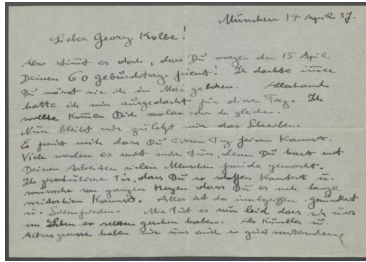 München 14 April 37.
Lieber Georg Kolbe!
Also stimmt es doch, dass Du morgen den 15 April
Deinen 60 geburtstag feierst! Ich dachte immer
Du wärst wie ich im Mai geboren. Allerhand
hatte ich mir ausgedacht für diesen Tag. Ich
wollte
Nun bleibt mir zu letzt nur das Schreiben.
Es freut mich dass Du diesen Tag feiern kannst.
Viele werden es mit mir tun, denn Du hast mit
Deinen Arbeiten vielen Menschen freude gemacht.
Ich gratuliere Dir, dass Du so schaffen kannst u.
wünsche von ganzem Herzen dass Du es noch lange
kannst. Alles ist da inbegriffen, gesundheit
u. Mir tut es nur leid dass ich Dich
im Leben so selten gesehen habe. Als Künstler u.
Altersgenosse haben wir uns auch so gut verstanden